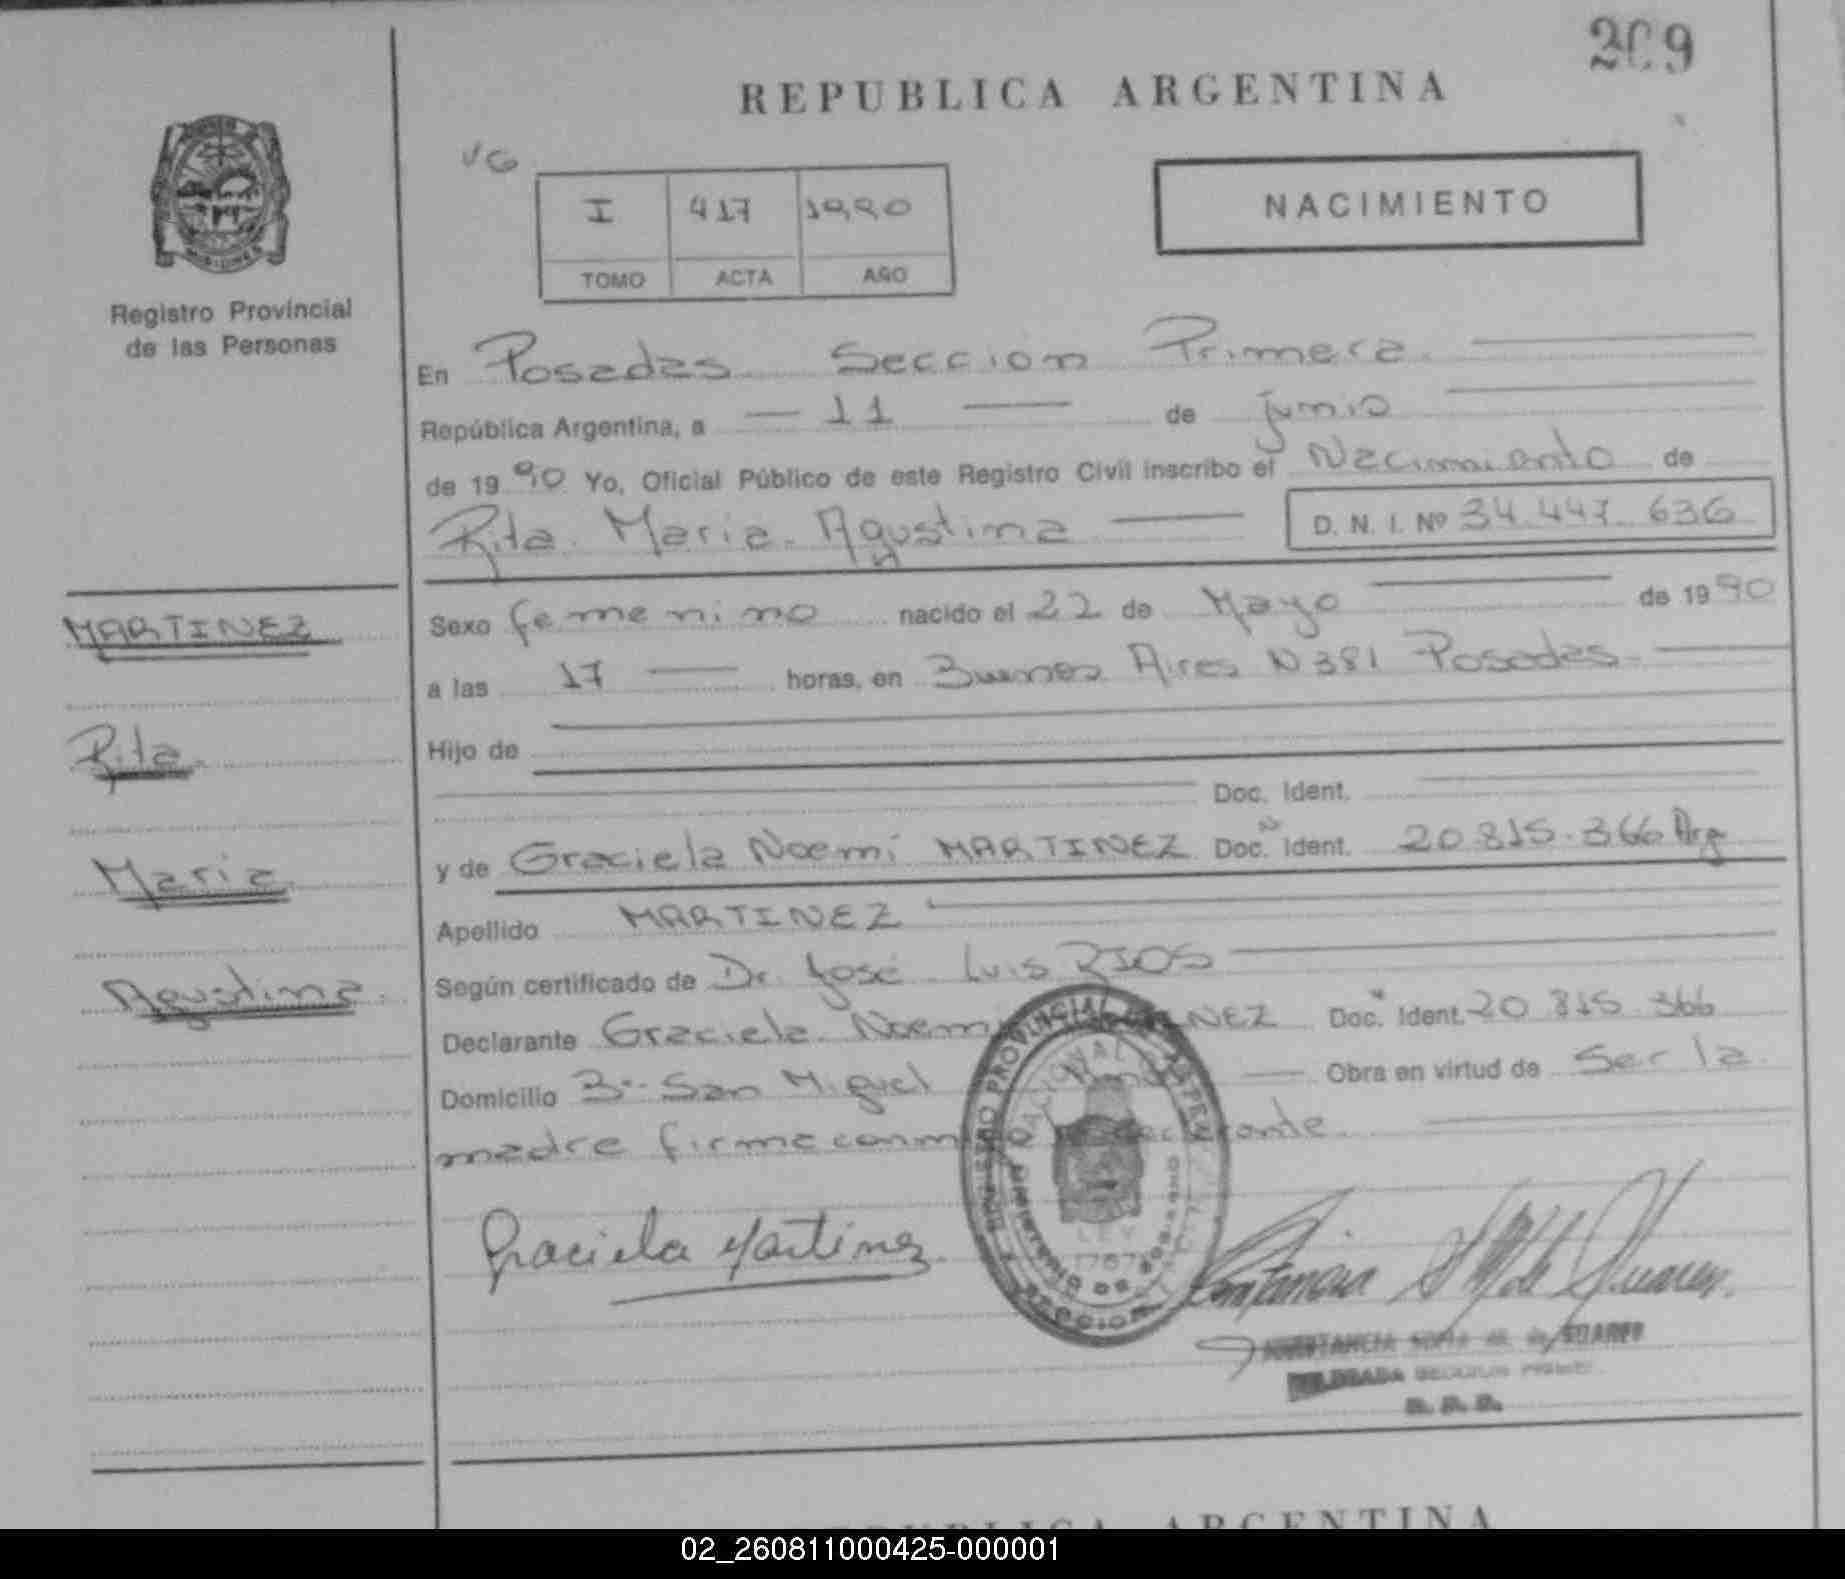 209
REPUBLICA ARGENTINA
VG
I 417 1990
TOMO ACTA AÑO
NACIMIENTO
MISIONES
Registro Provincial
de las Personas
En Posadas Seccion Primera
República Argentina, a 11 de junio
de 1990 Yo, Oficial Público de este Registro Civil inscribo el Nacimiento de
Rita Maria Agustina D. N. I. Nº 34.447.636
MARTINEZ
Rita
Maria
Agustina
Sexo femenino nacido el 22 de Mayo de 1990
a las 17 horas, en Buenos Aires N 381 Posadas
Hijo de
Doc. Ident.
y de Graciela Noemi MARTINEZ Doc. Ident. 20.815.366 Arg
Apellido MARTINEZ
Según certificado de Dr. José Luis RIOS
Declarante Graciela Noemi NEZ Doc. Ident. 20.815.366
Domicilio Bº San Miguel Obra en virtud de Ser la
madre firma
Graciela Martinez
REGISTRO PROVINCIAL
SUAREZ
DELEGADA SECCION
R. P. P.
REPUBLICA ARGENTINA
02_260811000425-000001